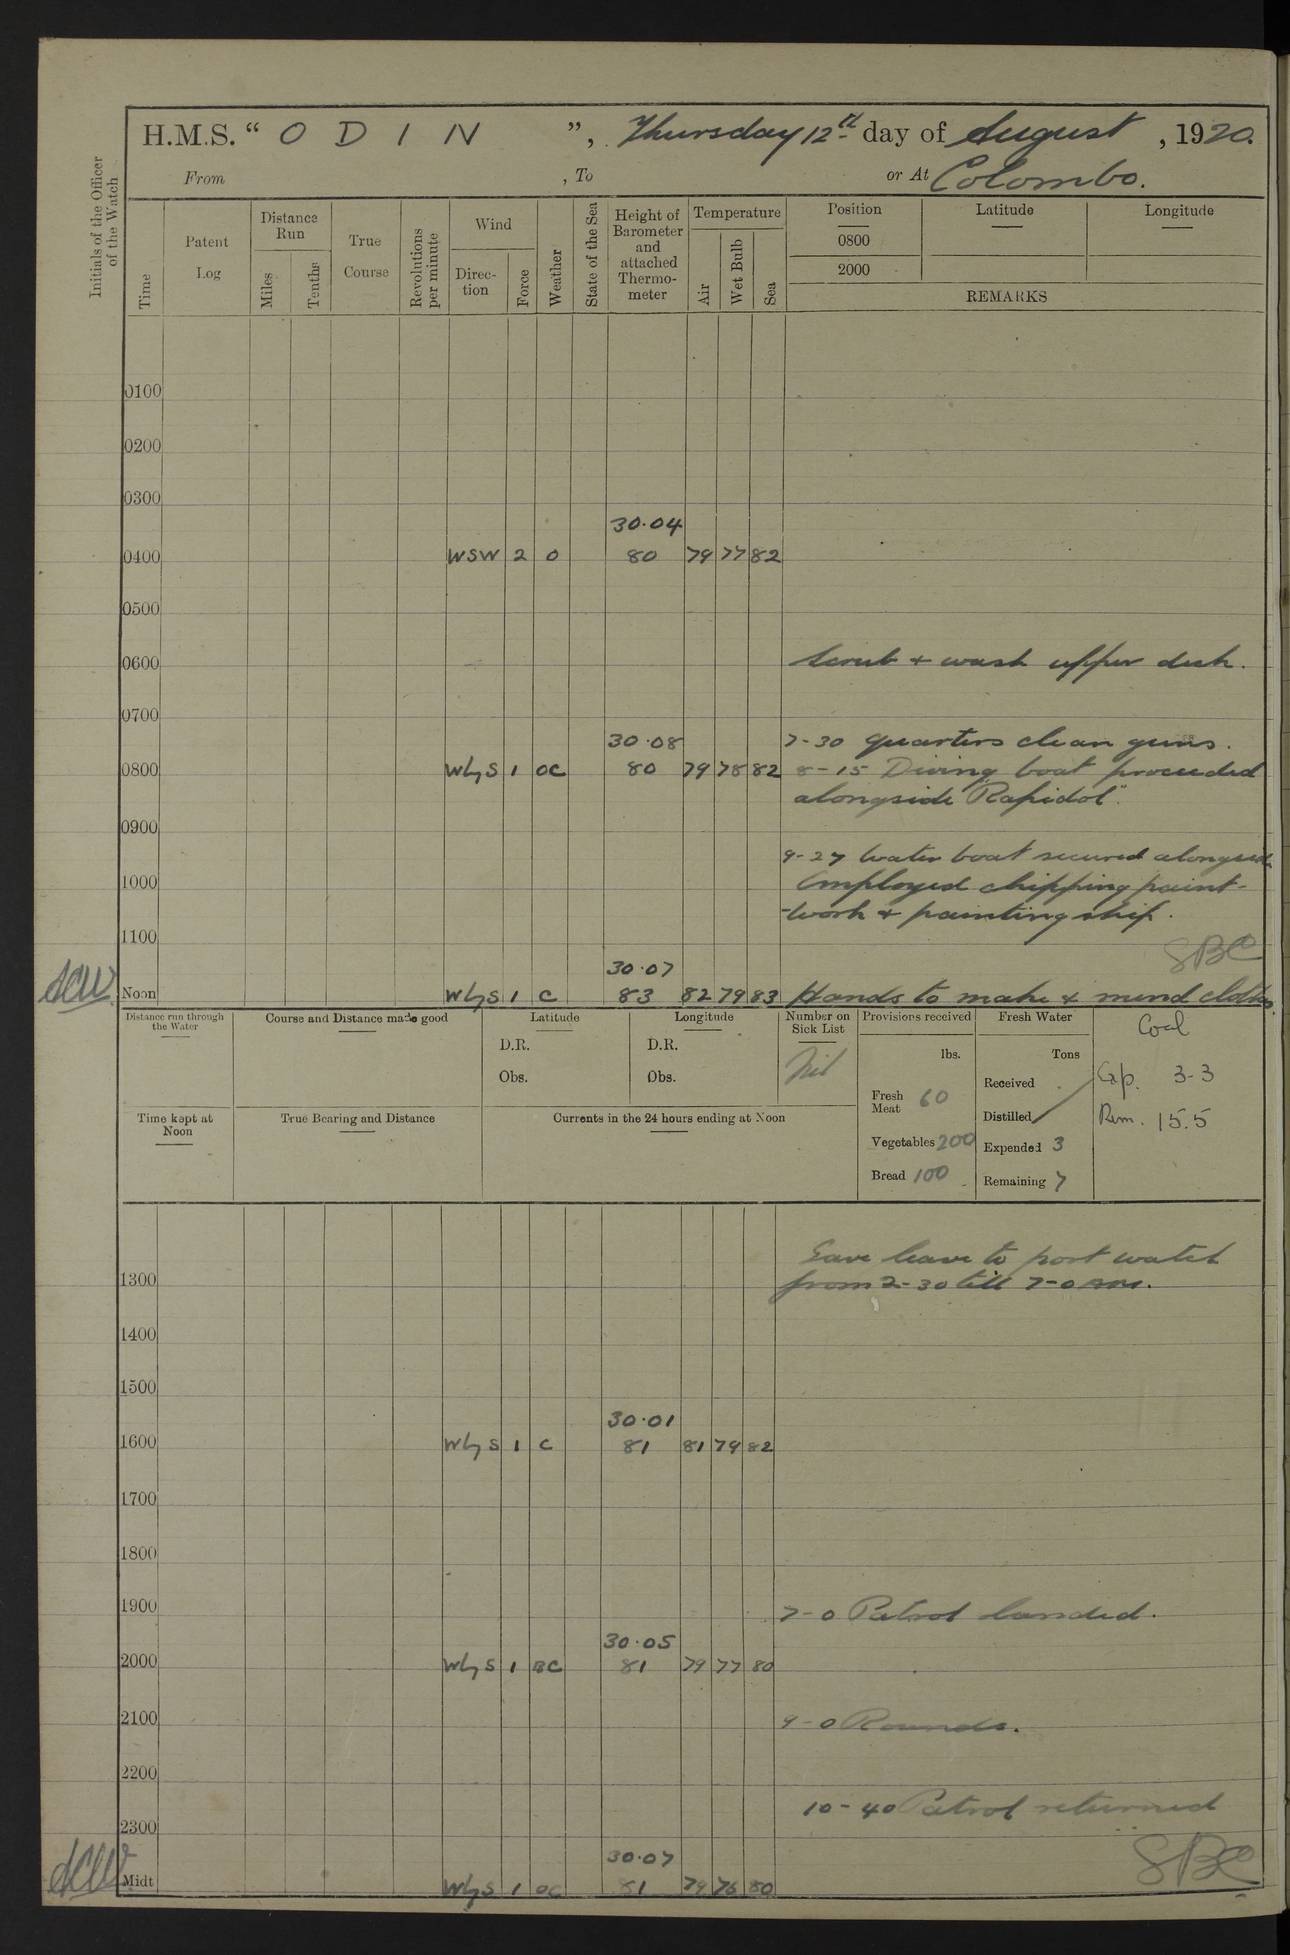 H.M.S. “ O D I N ”, Thursday 12th day of August, 1920.
From , To or At Colombo.
Initials of the Officer of the Watch
Time
Patent Log
Distance Run
Miles
Tenths
True Course
Revolutions per minute
Wind
Direc-tion
Force
Weather
State of the Sea
Height of Barometer and attached Thermo-meter
Temperature
Air
Wet Bulb
Sea
Position
0800
2000
Latitude
Longitude
REMARKS
0100
0200
0300
30.04
0400 WSW 2 O 80 79 77 82
0500
0600 Scrub & wash upper deck.
0700
30.08 7-30 quarters clean guns.
0800 WbyS 1 OC 80 79 78 82 8-15 Diving boat proceeded
alongside "Rapidol".
0900
9-27 Water boat secured alongside
1000 Employed chipping paint-
-work & painting ship.
1100
SBC
30.07
ACW Noon WbyS 1 C 83 82 79 83 Hands to make & mend clothes
Distance run through the Water
Course and Distance made good
Latitude
D.R.
Obs.
Longitude
D.R.
Obs.
Number on Sick List
Nil
Provisions received
lbs.
Fresh Meat 60
Vegetables 200
Bread 100
Fresh Water
Tons
Received
Distilled
Expended 3
Remaining 7
Coal
Exp. 3-3
Rem. 15.5
Time kept at Noon
True Bearing and Distance
Currents in the 24 hours ending at Noon
Gave leave to port watch
1300 from 2-30 till 7-0 am.
1400
1500
30.01
1600 WbyS 1 C 81 81 79 82
1700
1800
1900 7-0 Patrol landed.
30.05
2000 WbyS 1 BC 81 79 77 80
2100 9-0 Rounds.
2200
10-40 Patrol returned
2300
30.07
SBC
ACW Midt WbyS 1 OC 81 79 76 80